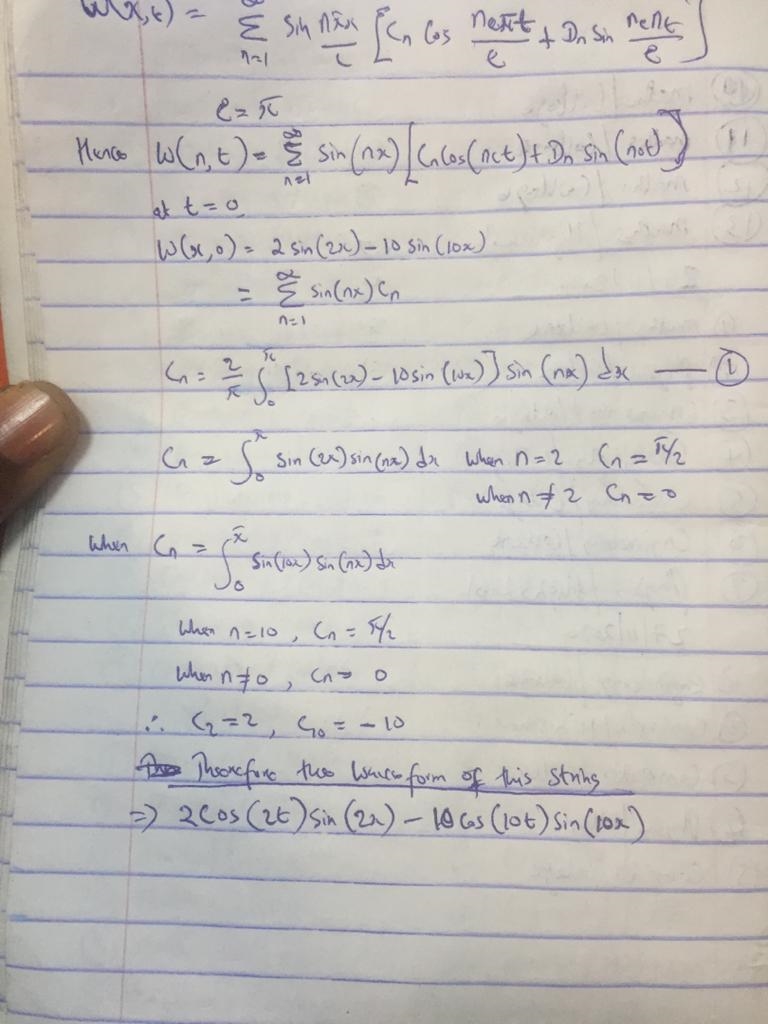 W(x,t) = ∞ Σ n=1 sin nπx/l [Cn Cos ncπt/l + Dn Sin ncπt/l]
l = π
Hence W(n,t) = ∞ Σ n=1 sin(nx) [Cn Cos(nct) + Dn sin(nct)]
at t = 0
W(x,0) = 2 sin(2x) - 10 sin(10x)
= ∞ Σ n=1 sin(nx) Cn
Cn = 2/π ∫₀^π [2 sin(2x) - 10 sin(10x)] sin(nx) dx — ①
Cn = ∫₀^π sin(2x) sin(nx) dx when n = 2 Cn = π/2
when n ≠ 2 Cn = 0
When Cn = ∫₀^π sin(10x) sin(nx) dx
When n = 10, Cn = π/2
When n ≠ 0, Cn = 0
∴ C₂ = 2, C₁₀ = -10
Therefore the waveform of this string
⇒ 2 Cos(2t) Sin(2x) - 10 Cos(10t) Sin(10x)